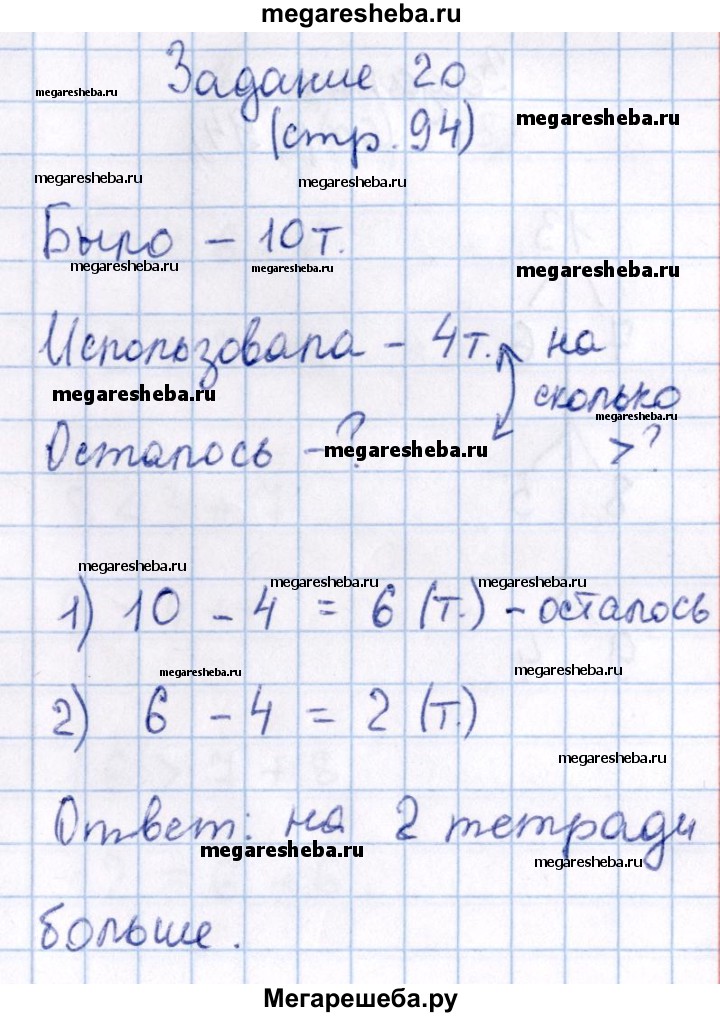 megaresheba.ru
Задание 20
megaresheba.ru
megaresheba.ru
(стр. 94)
megaresheba.ru
megaresheba.ru
Было - 10 т.
megaresheba.ru
megaresheba.ru
megaresheba.ru
Использовала - 4 т. на
megaresheba.ru
сколько
megaresheba.ru
Осталось - ? > ?
megaresheba.ru
megaresheba.ru
megaresheba.ru
megaresheba.ru
1) 10 - 4 = 6 (т.) - осталось
megaresheba.ru
megaresheba.ru
2) 6 - 4 = 2 (т.)
megaresheba.ru
Ответ: на 2 тетради
megaresheba.ru
megaresheba.ru
больше.
Мегарешеба.ру